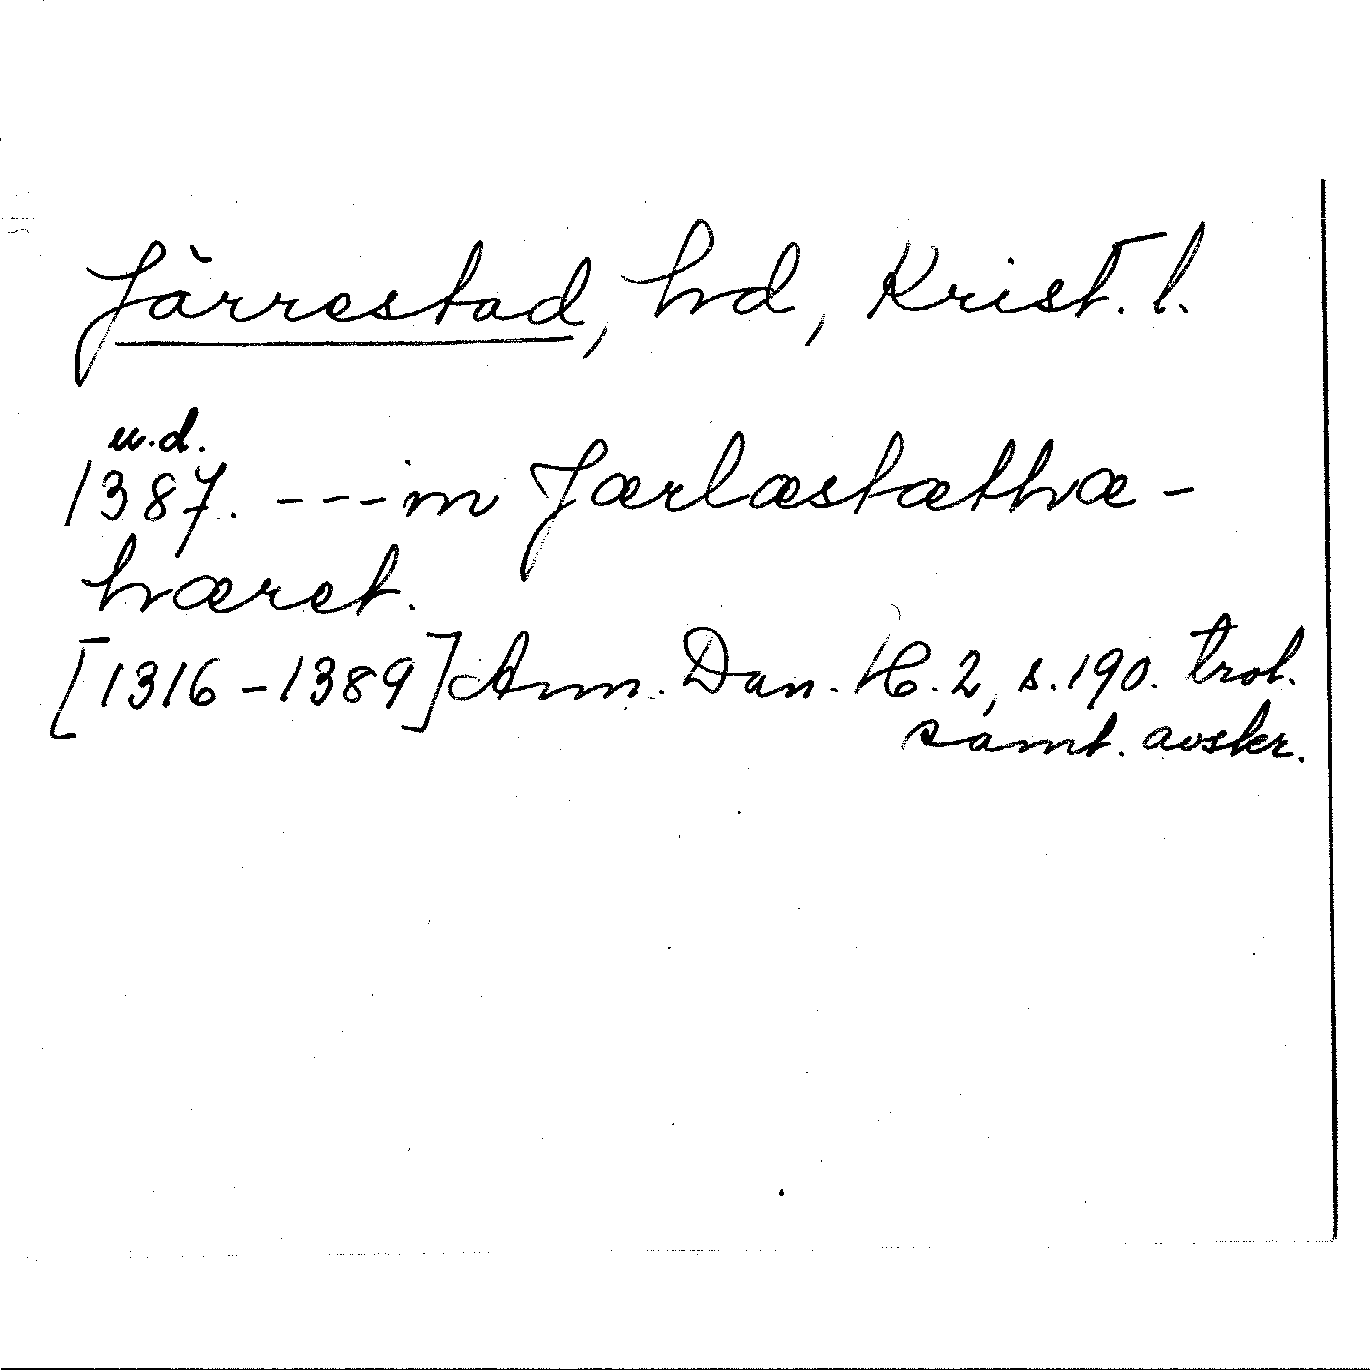 Järrestad, hd, Krist. l.
u.d.
1387. ---in Jærlæstæthæ-
hæret.
[1316-1389] Ann. Dan. H. 2, s. 190. trol.
samt. avskr.